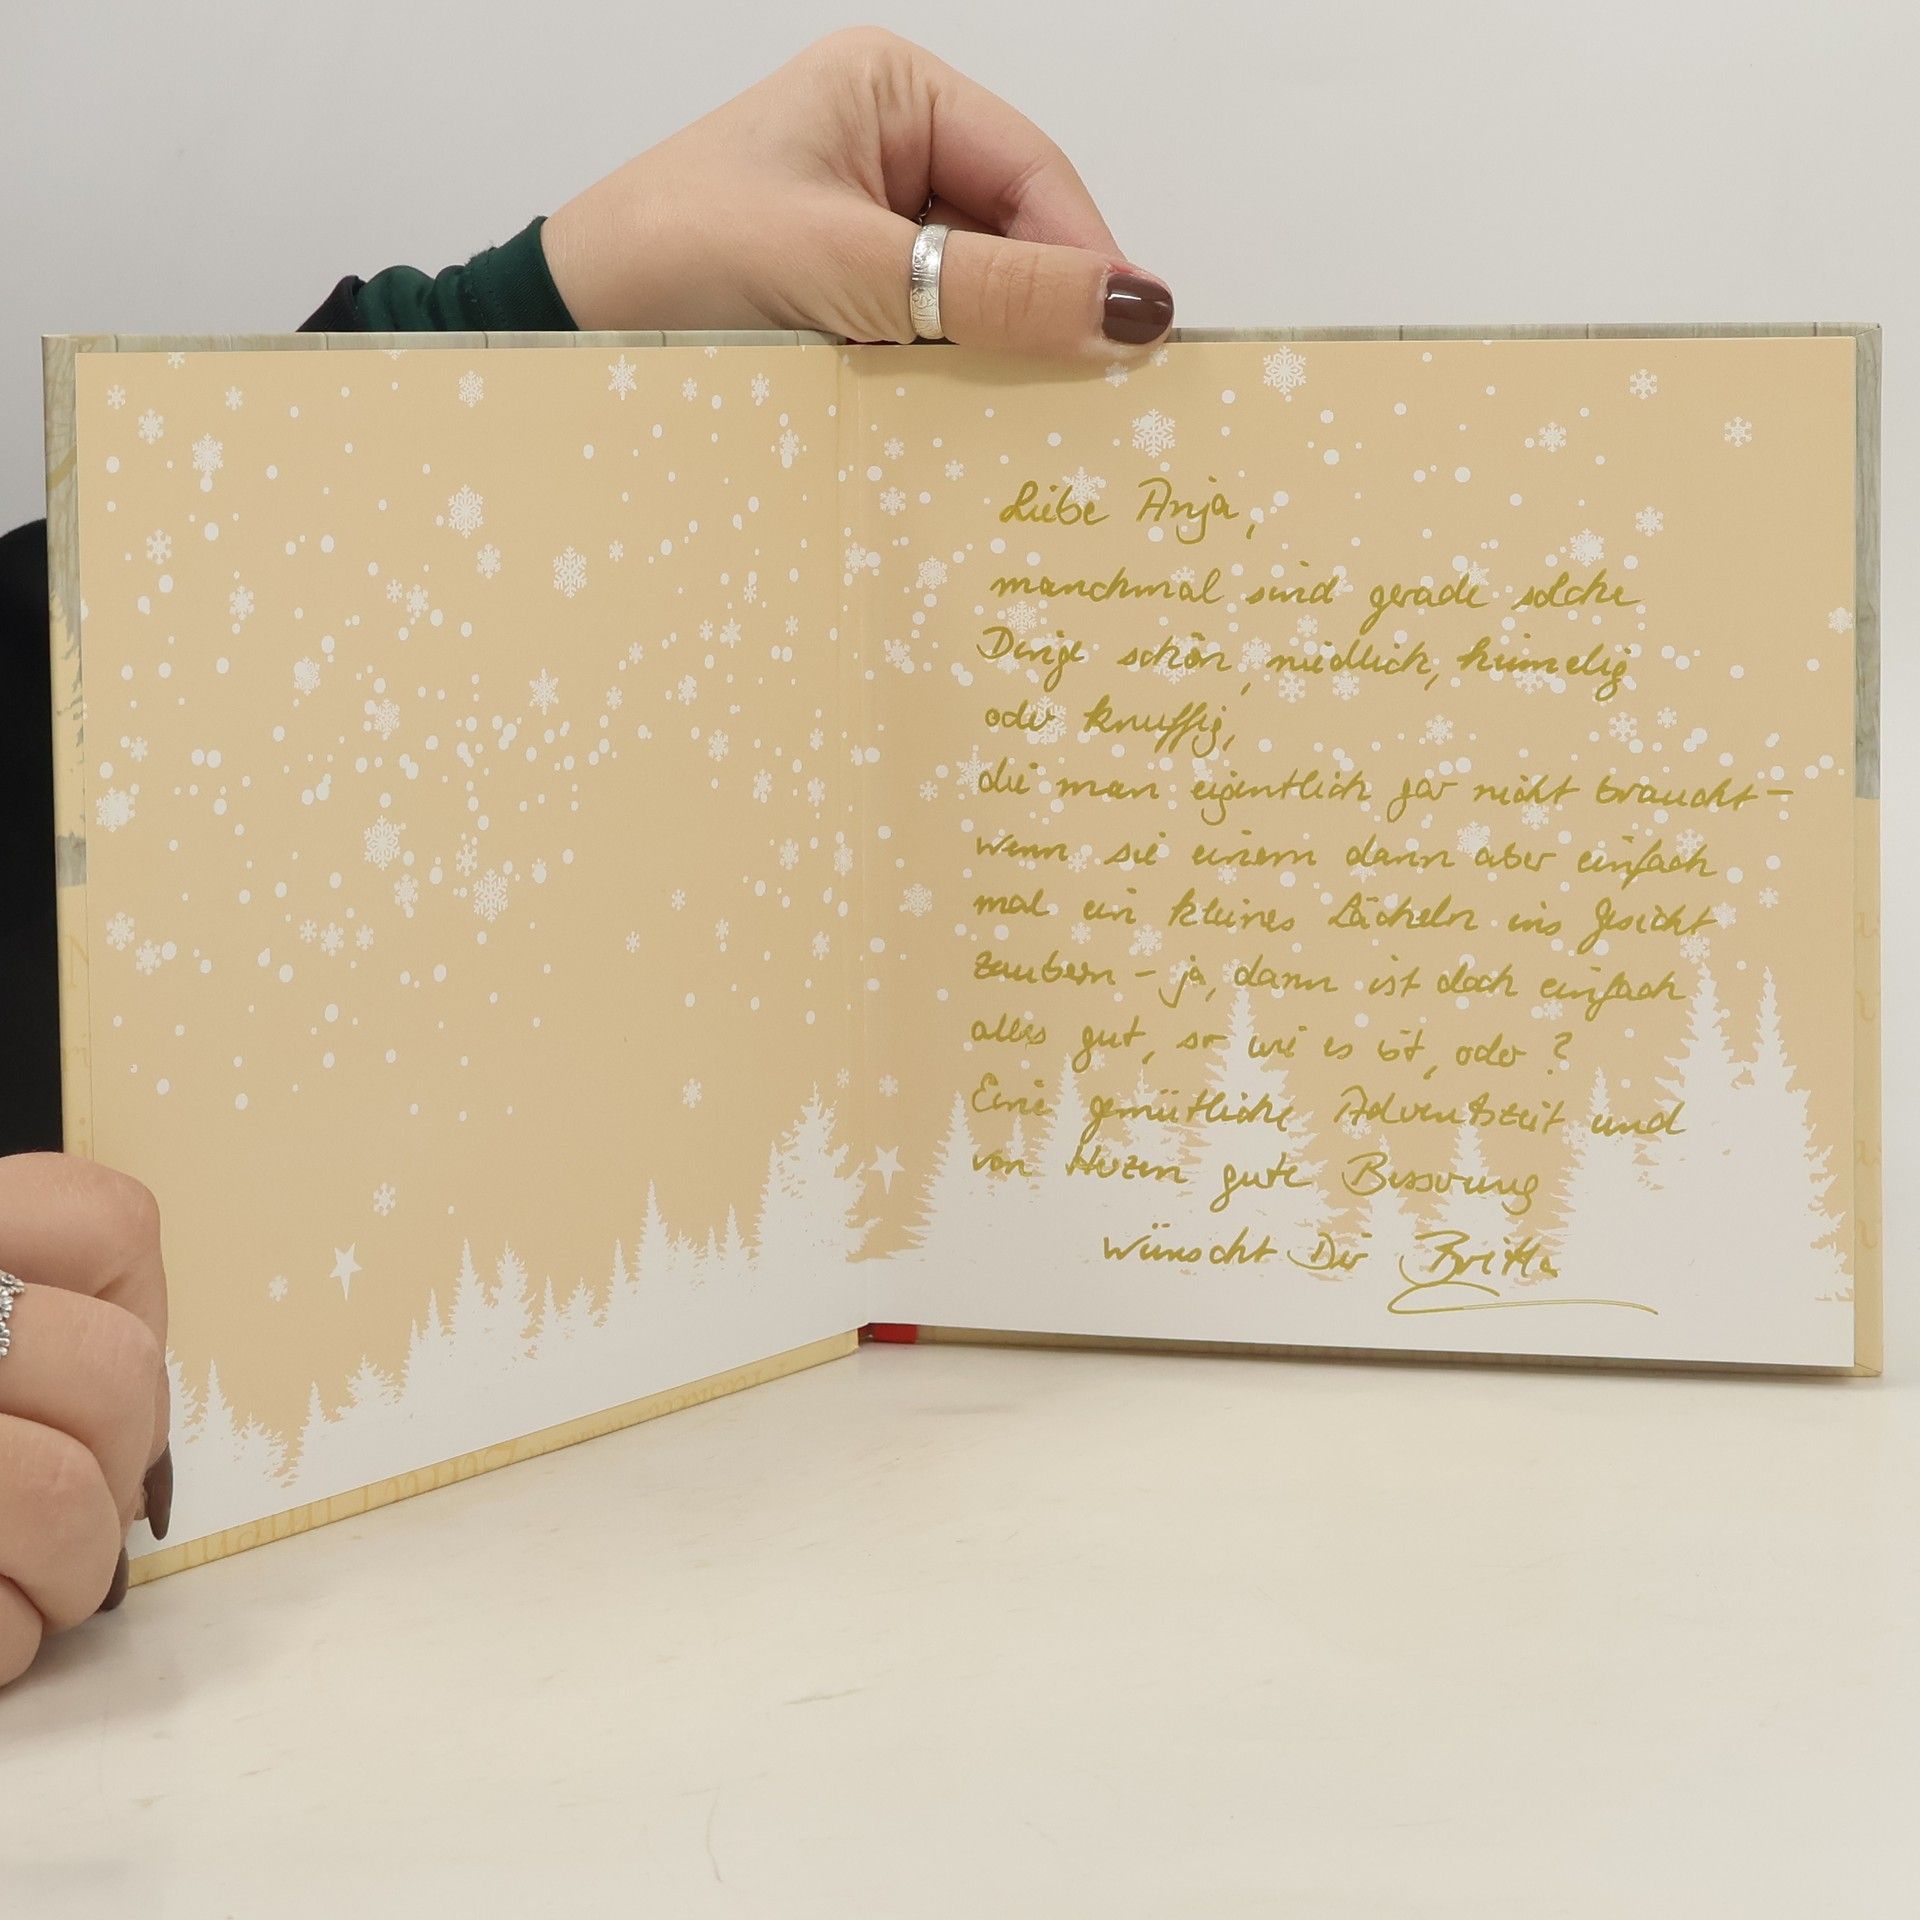 Liebe Anja,
manchmal sind gerade solche
Dinge schön, niedlich, heimelig
oder knuffig,
die man eigentlich gar nicht braucht –
wenn sie einem dann aber einfach
mal ein kleines Lächeln ins Gesicht
zaubern – ja, dann ist doch einfach
alles gut, so wie es ist, oder?
Eine gemütliche Adventszeit und
von Herzen gute Besserung
wünscht Dir Britta